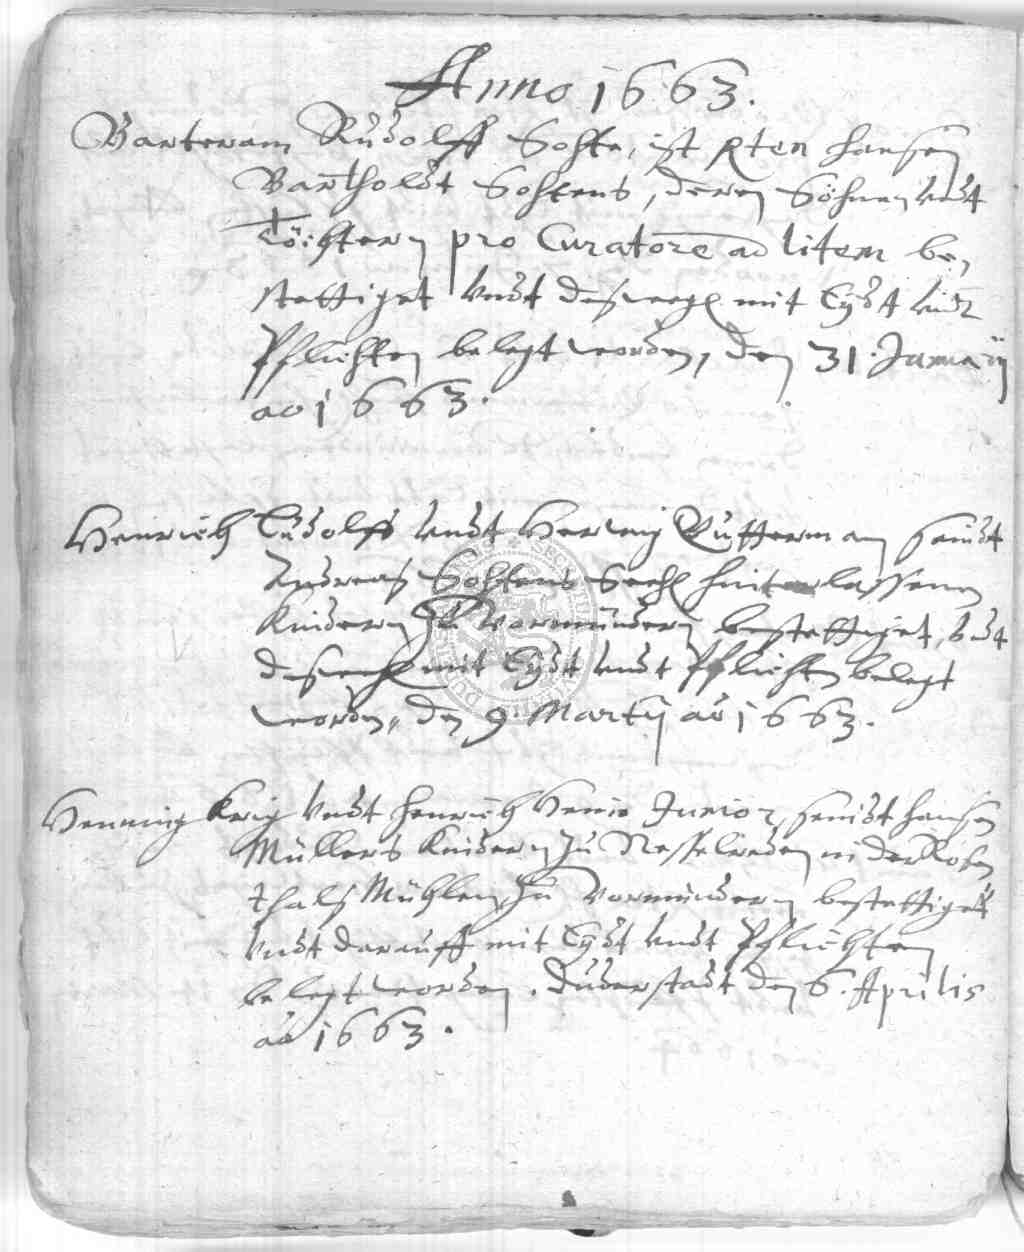 Anno 1663.
Barteram Rudolff Sohte, ist Hansen
Bartholdt Sohtens, deren Söhnen undt
Töchtern pro Curatore ad litem be,
stettiget undt deswegen mit Eydt und
Pflichten belegt worden, den 31. Januarij
ao 1663.
Heinrich Ludolff undt Herwig Rutterman seindt
Andreas Sohtens Seel hinterlassenen
Kindern zu Vormündern bestettiget, undt
deswegen mit Eydt undt Pflichten belegt
worden, den 9. Martij ao 1663.
Henning Krig undt Henrich Junior, seindt Hansen
Müllers Kindern zu Nesselreden in der Rosen
thals Mühlen zu Vormündern bestettiget
undt darauff mit Eydt undt Pflichten
belegt worden. Duderstadt den 6. Aprilis
ao 1663.